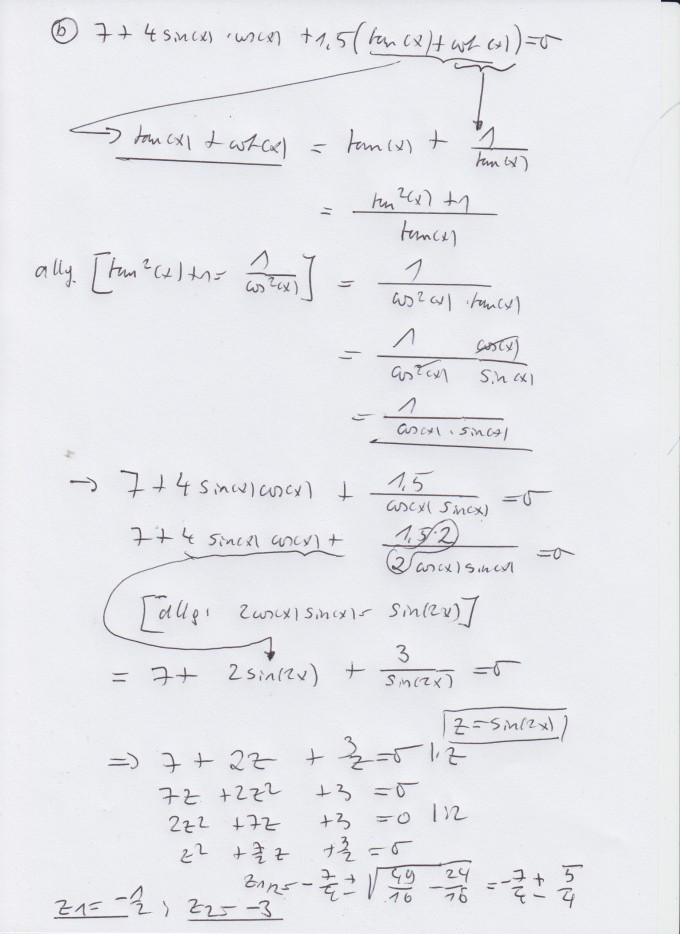 b) 7 + 4 sin(x) · cos(x) + 1,5 (tan(x) + cot(x)) = 0
→ tan(x) + cot(x) = tan(x) + 1/tan(x)
= (tan²(x) + 1)/tan(x)
allg. [tan²(x) + 1 = 1/cos²(x)] = 1/(cos²(x) · tan(x))
= 1/cos²(x) cos(x)/sin(x)
= 1/(cos(x) · sin(x))
→ 7 + 4 sin(x) cos(x) + 1,5/(cos(x) sin(x)) = 0
7 + 4 sin(x) cos(x) + (1,5 · 2)/(2 cos(x) sin(x)) = 0
[allg: 2 cos(x) sin(x) = sin(2x)]
= 7 + 2 sin(2x) + 3/sin(2x) = 0
z = sin(2x)
⇒ 7 + 2z + 3/z = 0 |·z
7z + 2z² + 3 = 0
2z² + 7z + 3 = 0 |:2
z² + 7/2 z + 3/2 = 0
z1,2 = -7/4 ± √(49/16 - 24/16) = -7/4 ± 5/4
z1 = -1/2 ; z2 = -3